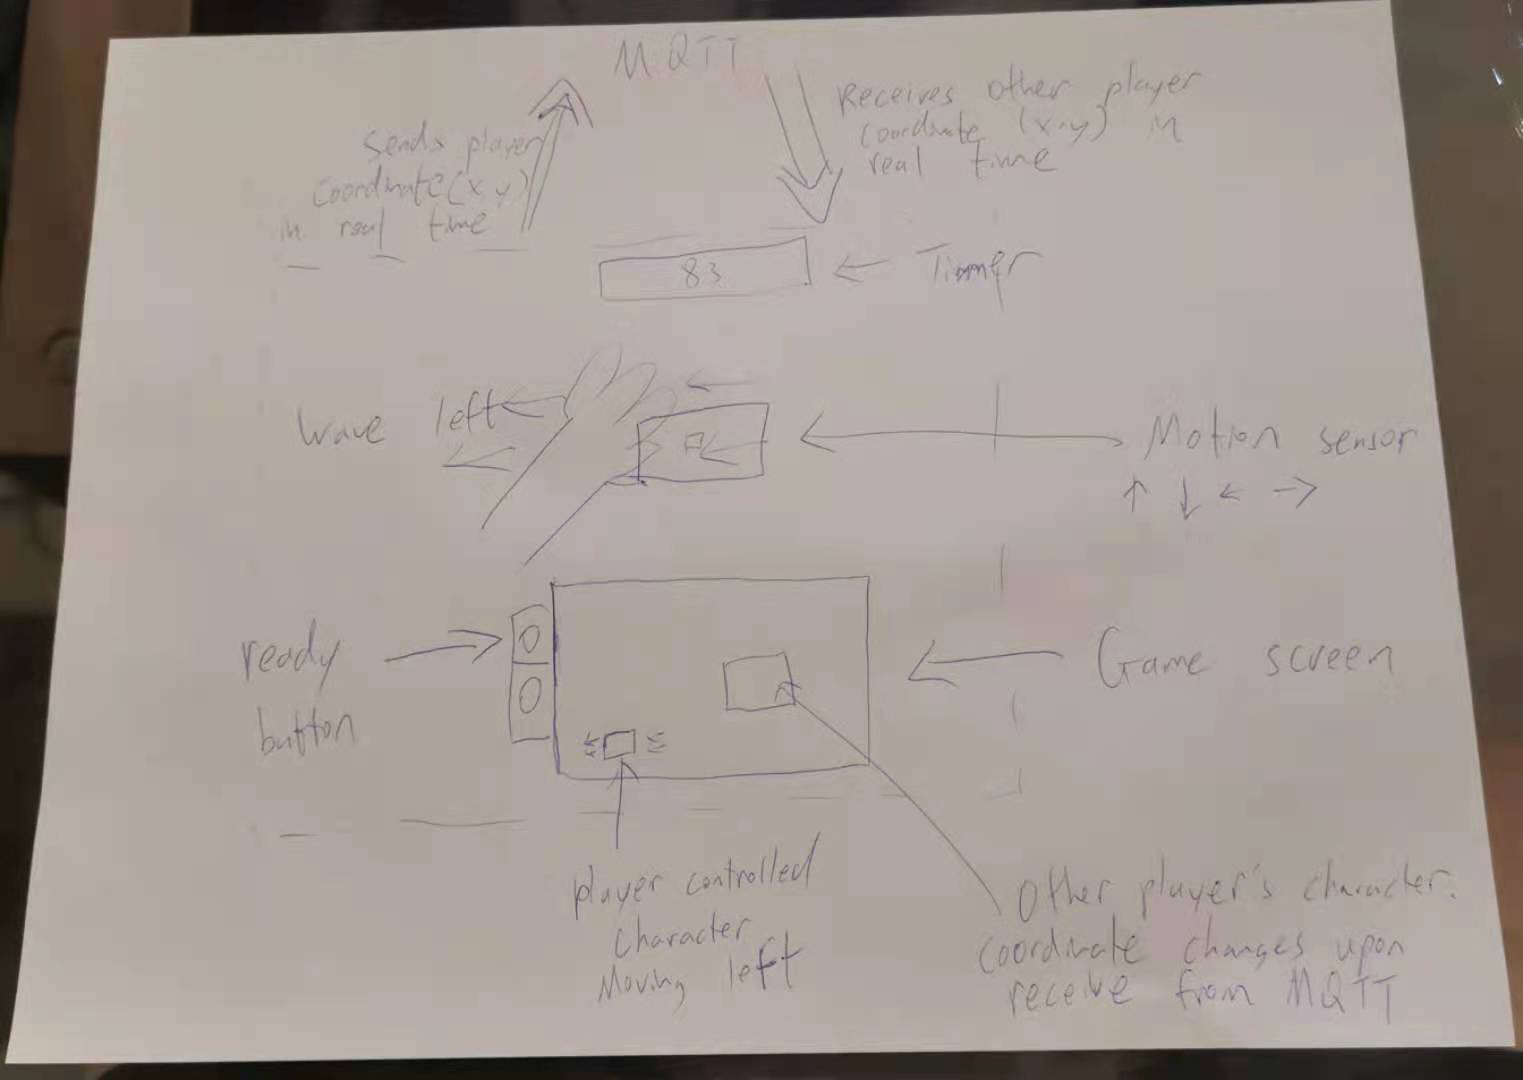 MQTT
Sends player
coordinate (x,y)
in real time
Receives other player
coordinate (x,y) in
real time
83
Timmer
wave left
Motion sensor
↑ ↓ ← →
ready
button
Game screen
player controlled
character
moving left
Other player's character.
coordinate changes upon
receive from MQTT